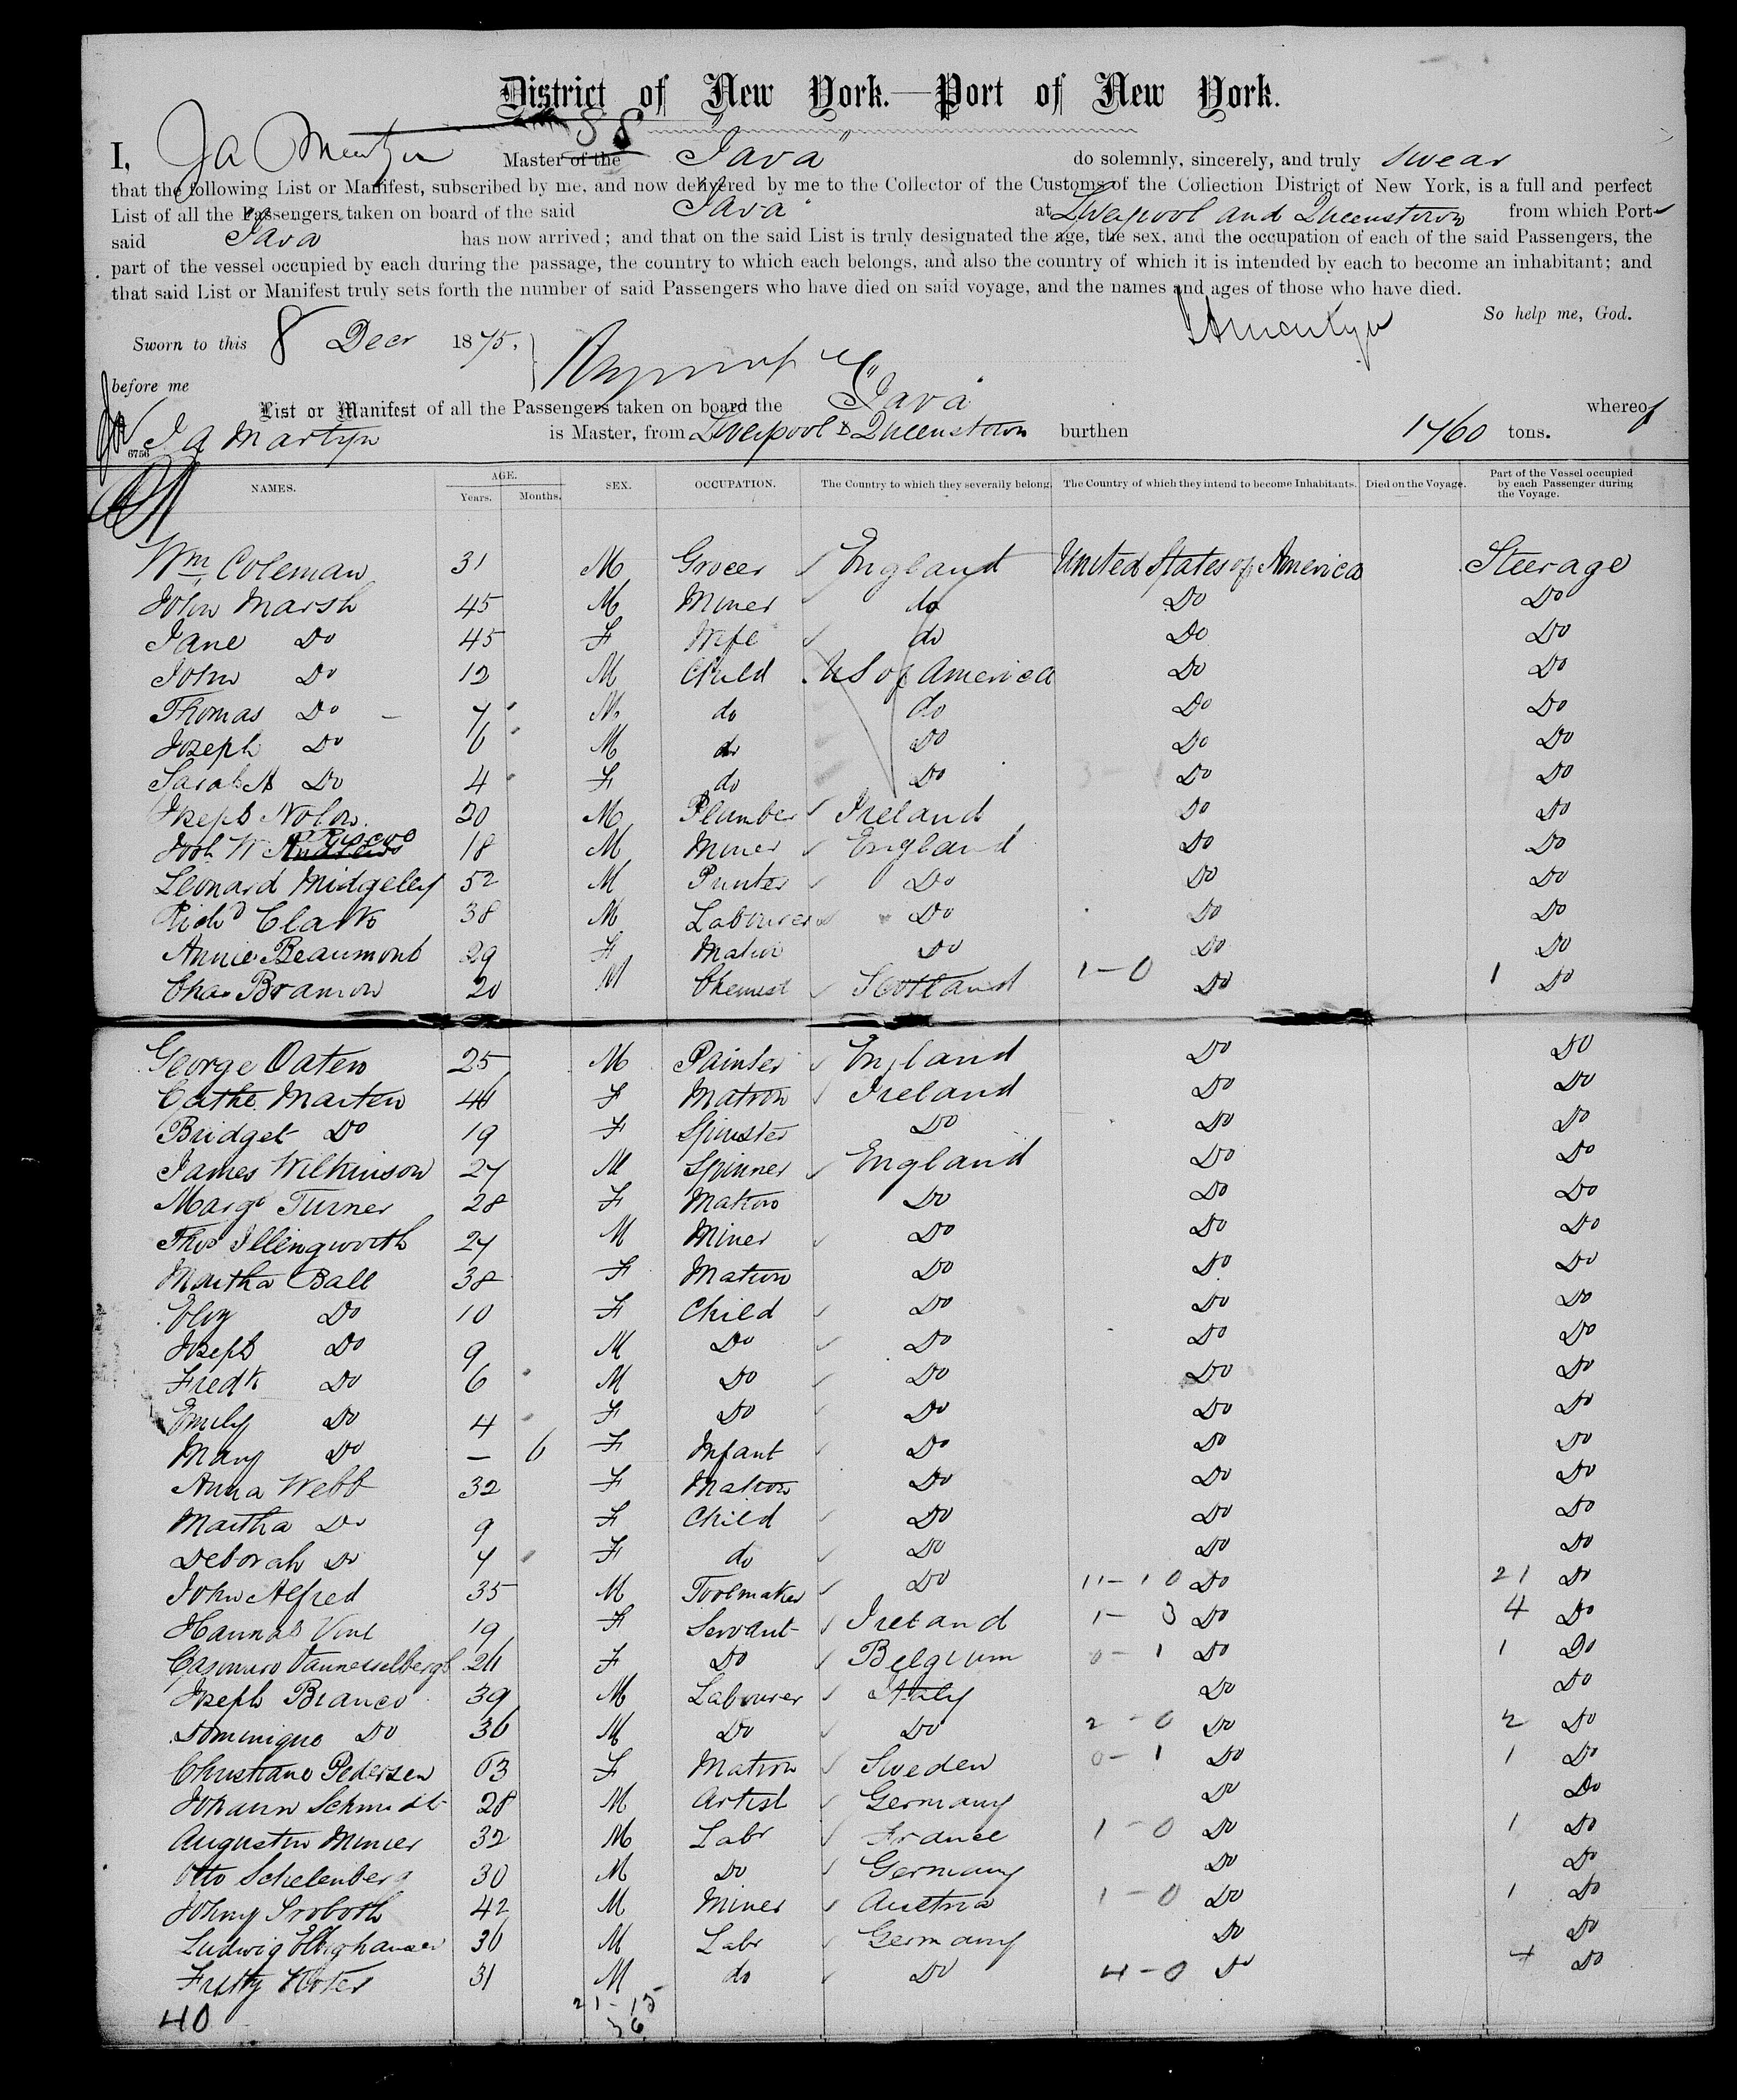 District of New York.—Port of New York.
S S
I, Master of the "Java" do solemnly, sincerely, and truly swear
that the following List or Manifest, subscribed by me, and now delivered by me to the Collector of the Customs of the Collection District of New York, is a full and perfect
List of all the Passengers taken on board of the said "Java" at Liverpool and Queenstown from which Port
said Java has now arrived; and that on the said List is truly designated the age, the sex, and the occupation of each of the said Passengers, the
part of the vessel occupied by each during the passage, the country to which each belongs, and also the country of which it is intended by each to become an inhabitant; and
that said List or Manifest truly sets forth the number of said Passengers who have died on said voyage, and the names and ages of those who have died.
So help me, God.
Sworn to this 8 Decr 1875.
before me
List or Manifest of all the Passengers taken on board the "Java" whereof
6756 J A Martyn is Master, from Liverpool & Queenstown burthen 1760 tons.
NAMES. AGE. Years. Months. SEX. OCCUPATION. The Country to which they severally belong. The Country of which they intend to become Inhabitants. Died on the Voyage. Part of the Vessel occupied by each Passenger during the Voyage.
Wm Coleman 31 M Grocer England United States of America Steerage
John Marsh 45 M Miner do Do Do
Jane Do 45 F Wife do Do Do
John Do 12 M Child US of America Do Do
Thomas Do 7 M do do Do Do
Joseph Do 6 M do Do Do Do
Sarah A Do 4 F do Do Do Do
Joseph Nolan 20 M Plumber Ireland Do Do
W 18 M Miner England Do Do
Leonard Midgeley 52 M Printer Do Do Do
Richd Clark 38 M Labourer Do Do Do
Annie Beaumont 29 F Matron Do Do Do
Chas 20 M Chemist Scotland 1-0 Do 1 Do
George Oaten 25 M Painter England Do Do
Cathe Marten 46 F Matron Ireland Do Do
Bridget Do 19 F Spinster Do Do Do
James Wilkinson 27 M Spinner England Do Do
Margt Turner 28 F Matron Do Do Do
Thos Illingworth 27 M Miner Do Do Do
Martha Ball 38 F Matron Do Do Do
Do 10 F Child Do Do Do
Joseph Do 9 M Do Do Do Do
Fredk Do 6 M Do Do Do Do
Emily Do 4 F Do Do Do Do
Mary Do — 6 F Infant Do Do Do
Anna Webb 32 F Matron Do Do Do
Martha Do 9 F Child Do Do Do
Deborah Do 7 F do Do Do Do
John Alfred 35 M Toolmaker Do 11-10 Do 21 Do
Hannah 19 F Servant Ireland 1-3 Do 4 Do
F Do Belgium 0-1 Do 1 Do
Joseph Bianco 39 M Labourer Italy Do Do
Dominique Do 36 M Do Do 2-0 Do 2 Do
Christiane Pedersen 63 F Matron Sweden 0-1 Do 1 Do
Johann Schmidt 28 M Artist Germany Do Do
Augustin 32 M Labr France 1-0 Do 1 Do
Otto Schelenberg 30 M Do Germany Do Do
42 M Miner Austria 1-0 Do 1 Do
Ludwig 36 M Labr Germany Do Do
31 M do Do 4-0 Do 4 Do
40 21-15
36